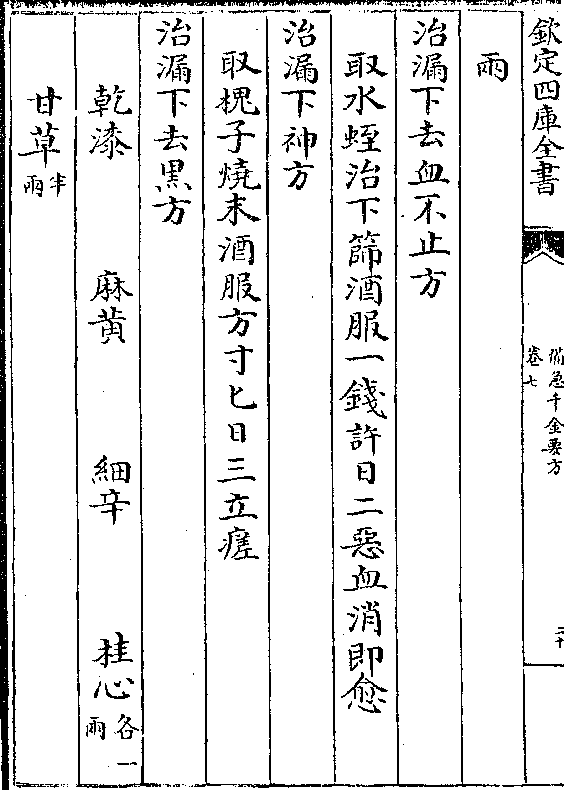 欽定四庫全書
備急千金要方
卷七
二十
兩
治漏下去血不止方
取水蛭治下篩酒服一錢許日二惡血消即愈
治漏下神方
取槐子燒末酒服方寸匕日三立瘥
治漏下去黑方
乾漆　麻黄　細辛　桂心各一兩
甘草半兩